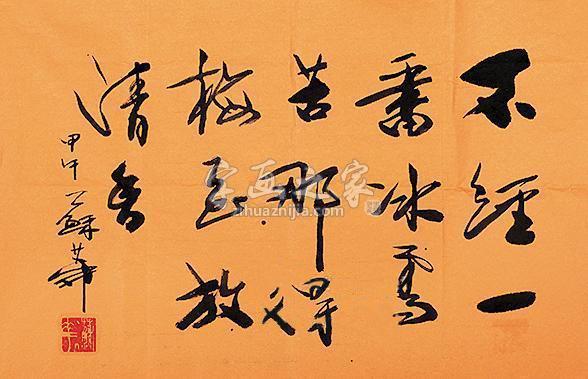 不經一
番冰雪
苦那得
梅花放
清香
甲午 蘇華
字画之家
zihuazhijia.com